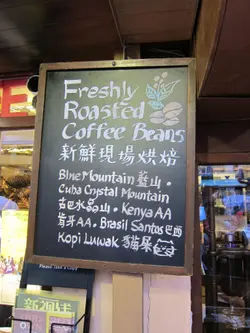 Freshly
Roasted
Coffee Beans
新鮮現場烘焙
Blue Mountain 藍山 .
Cuba Crystal Mountain
古巴水晶山 . Kenya AA
肯牙AA . Brasil Santos 巴西
Kopi Luwak 貓屎
Please Take a Copy